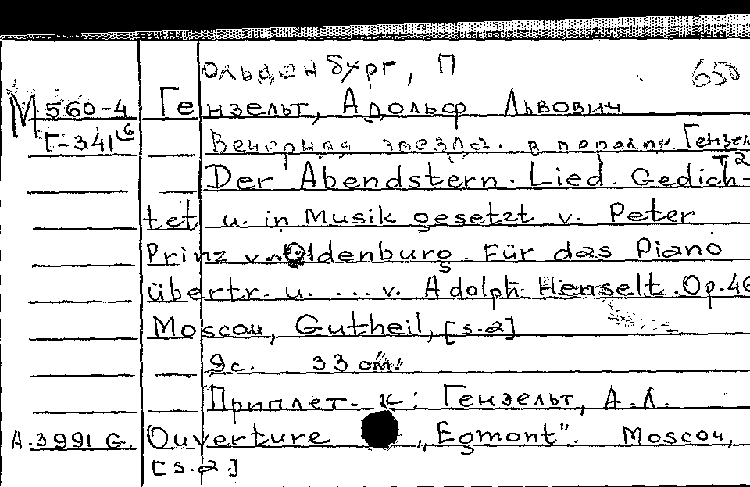 Ольденбург, П 650
М 560-4 Гензельт, Адольф Львович
Г-341⁶ Вечерняя звезда. в перелож Гензел
Der Abendstern. Lied. Gedich-
tet u. in Musik gesetzt v. Peter
Prinz v. Oldenburg. Für das Piano
übertr. u. .... v. Adolph Henselt. Op. 46
Moscou, Gutheil, [s.a]
9с. 33 см.
Приплет. к: Гензельт, А.Л.
А.3991 G. Ouverture „Egmont". Moscou,
[s.a]